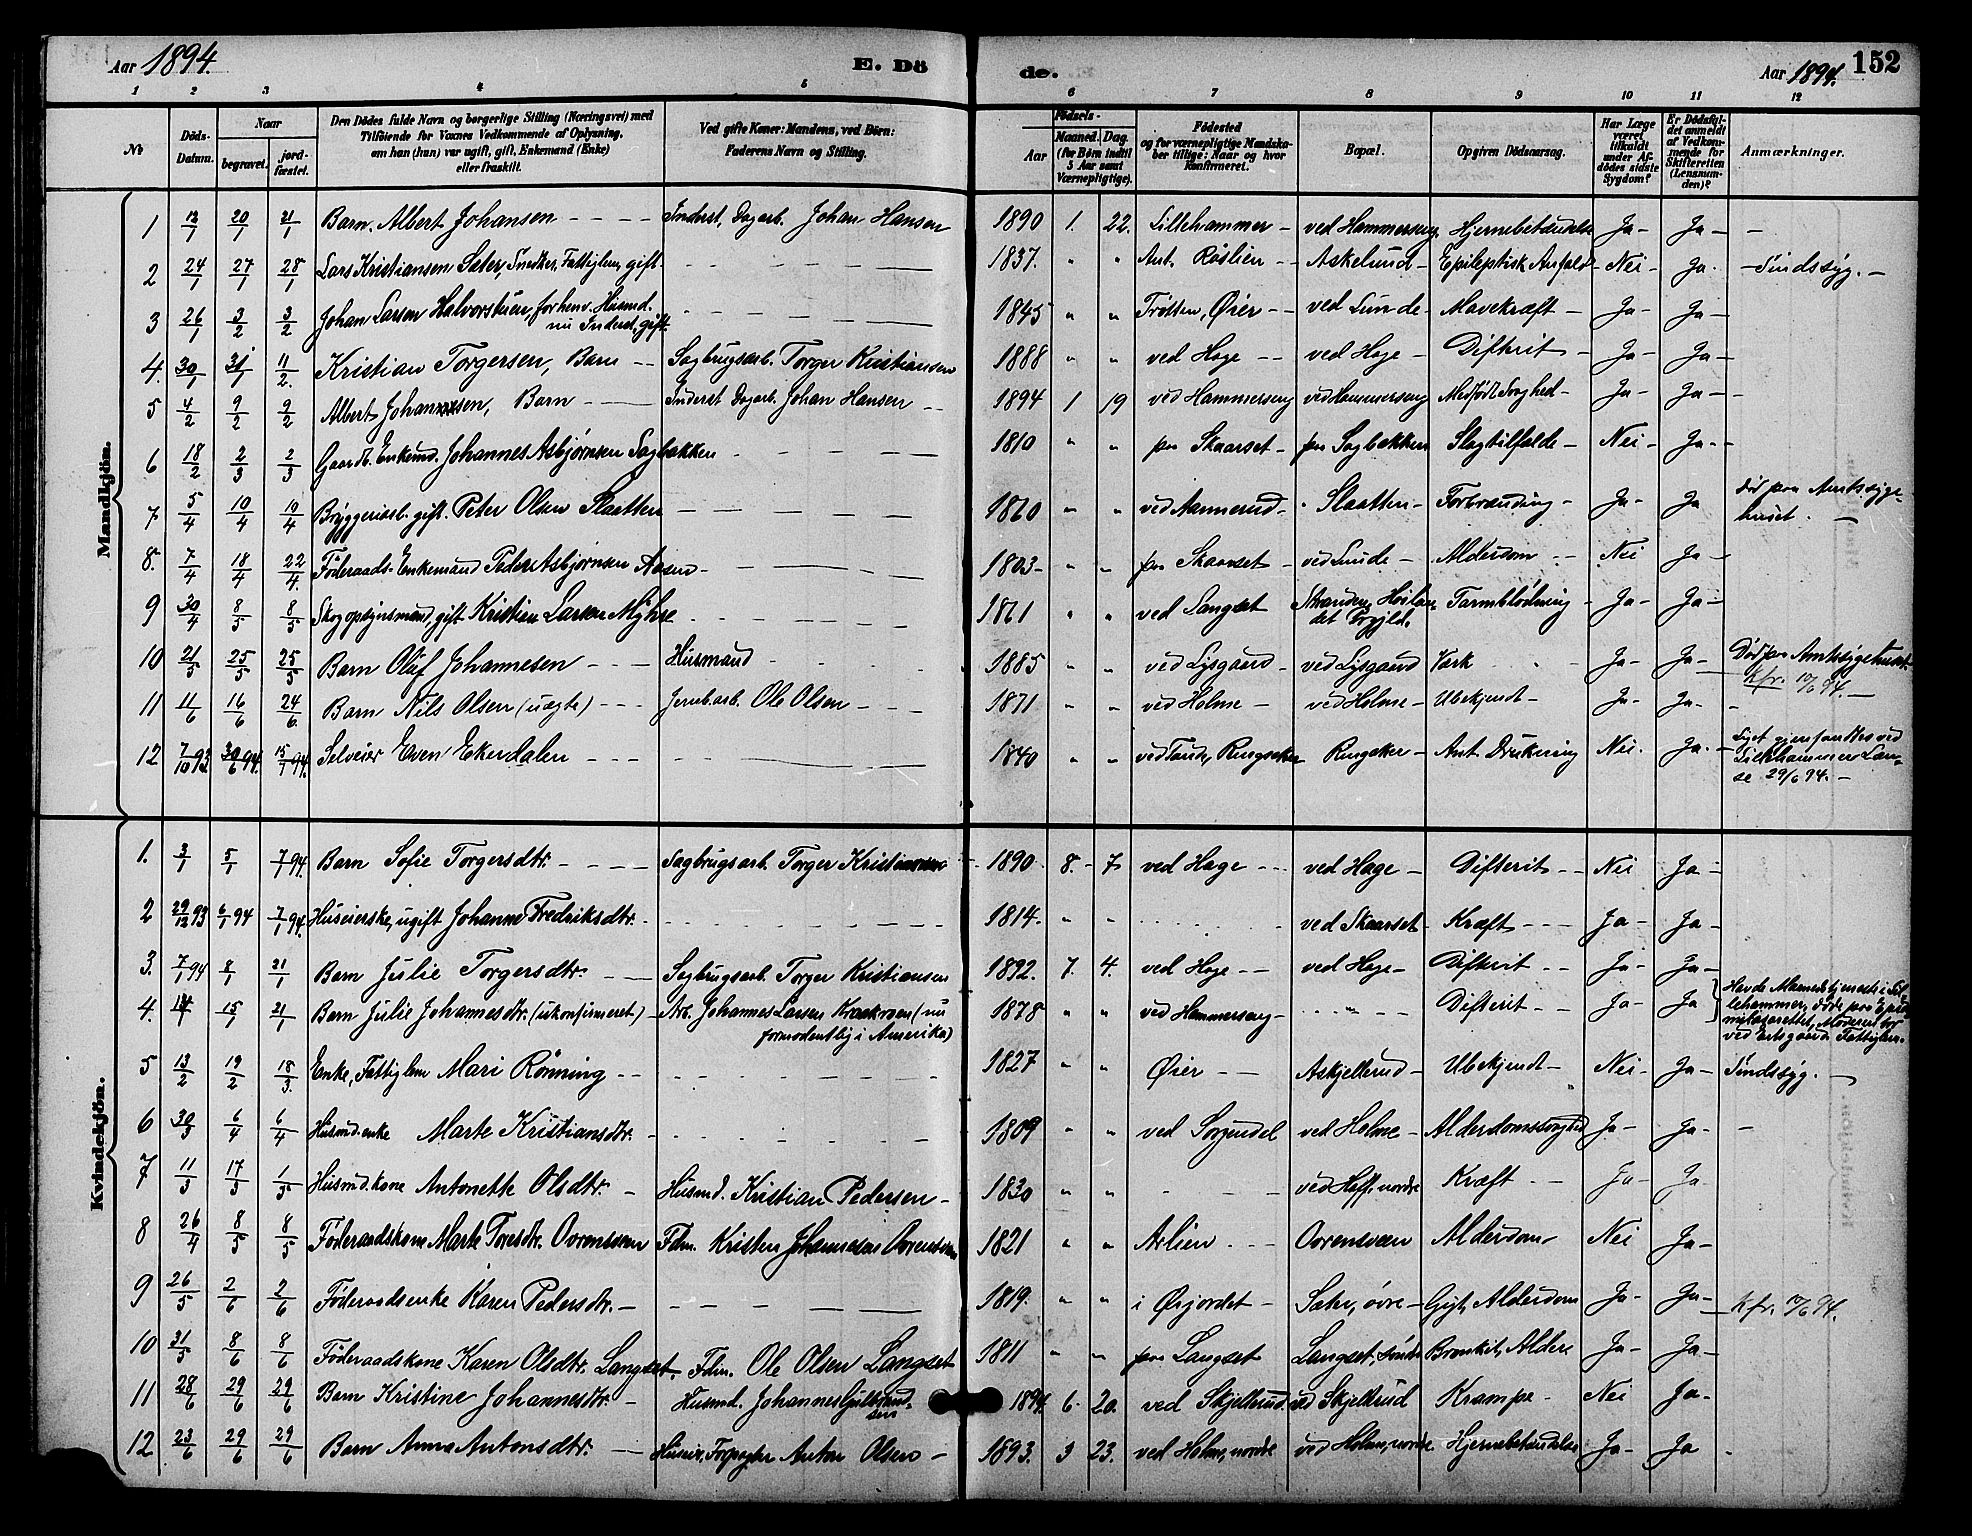 Aar 1894. E. Dö
de. Aar 1894. 152
1 2 3 4 5 6 7 8 9 10 11 12
No
Döds-Datum.
Naar
begravet.
jord-fæstet.
Den Dödes fulde Navn og borgerlige Stilling (Næringsvei) med
Tilföiende for Voxnes Vedkommende af Oplysning,
om han (hun) var ugift, gift, Enkemand (Enke)
eller fraskilt.
Ved gifte Koner: Mandens, ved Börn:
Faderens Navn og Stilling.
Födsels-
Aar
Maaned. Dag.
(for Börn indtil
5 Aar samt
Værnepligtige).
Födested
og for værnepligtige Mandska-
ber tillige: Naar og hvor
konfirmeret.
Bopæl.
Opgiven Dödsaarsag.
Har Læge
været
tilkaldt
under Af-
dödes sidste
Sygdom?
Er Dödsfal-
det anmeldt
af Vedkom-
mende for
Skifteretten
(Lensman-
den)?
Anmærkninger.
Mandkjön.
1 20/1 21/1 Barn. Albert Johansen Inderst, Dagarb. Johan Hansen 1890 1. 22. Lillehammer ved Hammerseng. Hjernebetændelse Ja Ja
2 24/1 27/1 28/1 Lars Kristiansen Sæter, Snedker, Fattiglem, gift 1837. " " Ant. Røslien Askelund Epileptisk Anfald Nei Ja. Sindssyg.
3 26/1 3/2 3/2 Johan Larsen Halvorstuen, forhenv. Husmd.
nu Inderst, gift. 1845 " " Tretten, Øier ved Lunde Mavekræft Ja Ja
4. 30/1 31/1 11/2. Kristian Torgersen, Barn Sagbrugsarb. Torger Kristiansen 1888 " " ved Hage ved Hage Difterit Ja Ja
5 4/2 9/2 9/2 Albert Johansen, Barn Inderst Dagarb. Johan Hansen 1894 1 19 ved Hammerseng ved Hammerseng Medfødt Svaghed Ja Ja
6 18/2 2/3 2/3 Gaardb. Enkemd. Johannes Asbjørnsen Sagbakken 1810 " " paa Skaarset paa Sagbakken Slagtilfælde Nei Ja
7 5/4 10/4 19/4 Bryggeriarb. gift. Peter Olsen Slaatten 1860 " " ved Aannerud Slaatten Forbrænding Ja Ja Død paa Amtssyge-
huset.
8. 7/4 18/4 22/4. Føderaads-Enkemand Peder Asbjørnsen Aasen 1803 " " paa Skaarset ved Lunde Alderdom Nei Ja
9 30/4 8/5 8/5 Skogopsynsmand, gift Kristian Larsen Myhre 1861 " " ved Langset Tarmblødning Ja Ja
10 21/5 25/5 25/5 Barn Olaf Johannesen Husmand 1885 " " ved Lysgaard ved Lysgaard Værk Ja Ja Død paa Amtssygehuset.
Kfr. 10/6 94.
11 11/6 16/6 24/6. Barn Nils Olsen (uægte) Jernb.arb. Ole Olsen 1871 " " ved Holme ved Holme Ubekjendt Ja Ja
12 7/10 93 30/6 94. 15/7 94. Selveier Even Ekerdalen 1840 Ringsaker Ant. Drukning Nei. Ja. Liget gjenfandtes ved
Lillehammer Læn-
se 29/6 94.
Kvindekjön.
1. 3/1 5/1 7/1 94. Barn Sofie Torgersdtr. Sagbrugsarb. Torger Kristiansen 1890 8. 7 ved Hage ved Hage Difterit Nei Ja
2 29/12 93 6/1 94 7/1 94. Huseierske, ugift Johanne Fredriksdtr. 1814. " " ved Skaarset Kræft Ja Ja
3. 7/1 94 8/1 21/1 Barn Julie Torgersdtr. Sagbrugsarb. Torger Kristiansen 1892. 7. 4. ved Hage ved Hage Difterit Ja Ja
4. 15/1 21/1 Barn Julie Johannesdtr. (ukonfirmeret) Arb. Johannes Larsen Kraakroen (nu
formodentlig i Amerika) 1878 " " ved Hammerseng " Difterit Ja Ja Havde tjeneste i Lil-
lehammer, døde paa Epide-
milazarettet, Moderen bor
Fattiglem.
5 13/2 19/2 18/3. Enke, Fattiglem Mari Rønning 1827 " " Øier Askjellrud Ubekjendt Nei Ja Sindssyg.
6 30/3 6/4 6/4 Husmd.enke Marte Kristiansdtr. 1809 " " ved Sorgendal ved Holme Alderdomssvaghed Ja Ja
7 11/3 17/3 1/5 Husmd.kone Antonette Olsdtr. Husmd. Kristian Pedersen 1830 " " ved Hoff, nordre Kræft Ja Ja
8 26/4 8/5 8/5 Føderaadskone Marte Toresdtr. Ovrensveen Fdm. Kristen Johannesen Ovrensveen 1821 " " Aslien Ovrensveen Alderdom Nei Ja
9 26/5 2/6 2/6 Føderaadsenke Karen Pedersdtr. 1819. " " i Øijordet Sæter, øvre Gigt, Alderdom Ja Ja Kfr. 10/6 94.
10 31/5 8/6 8/6 Føderaadskone Karen Olsdtr. Langset Fdm. Ole Olsen Langset 1811 " " paa Langset Langset, søndre Bronkit, Alder Ja Ja
11 28/6 29/6 29/6 Barn Kristine Johannesdtr. Husmd. Johannes Gulbrand-
sen 1894. 6. 20. ved Skjellrud ved Skjellrud Krampe Nei Ja
12 23/6 29/6 29/6 Barn Anna Antonsdtr. Anton Olsen 1893. 3 23. ved Holm, nordre ved Holm, nordre Hjernebetændelse Ja Ja